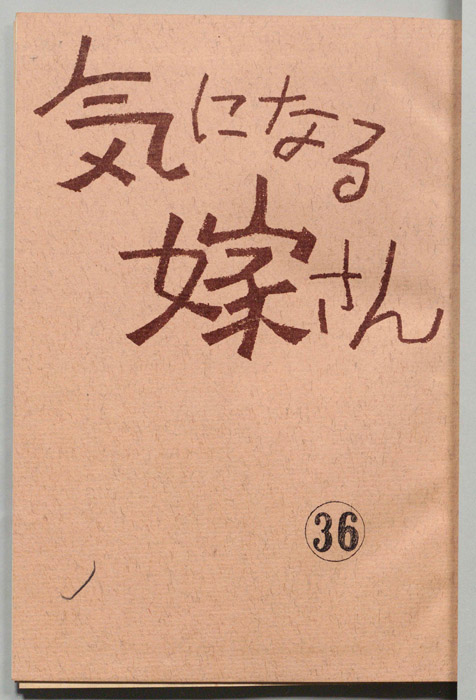 気になる
嫁さん
36